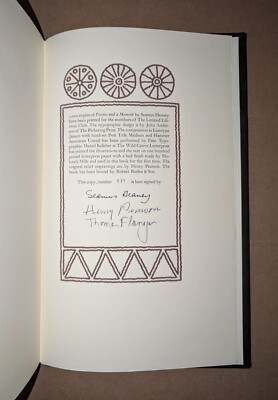 copies of Poems and a Memoir by Seamus Heaney
have been printed for the members of The Limited Edi-
tions Club. The typographic design is by John Ander-
son of The Pickering Press. The composition in Linotype
with Post Title Medium and Hammer
American Uncial has been performed by Fine Typo-
graphy. Daniel Keleher at The Wild Carrot Letterpress
has printed the illustrations and the text on one hundred
pound letterpress paper with a leaf made by
Mills and used in the book for the first time. The
original relief engravings are by Henry Pearson. The
book has been bound by Robert Burlen & Son.
This copy, number is here signed by
Seamus Heaney
Henry Pearson
Thomas Flanagan